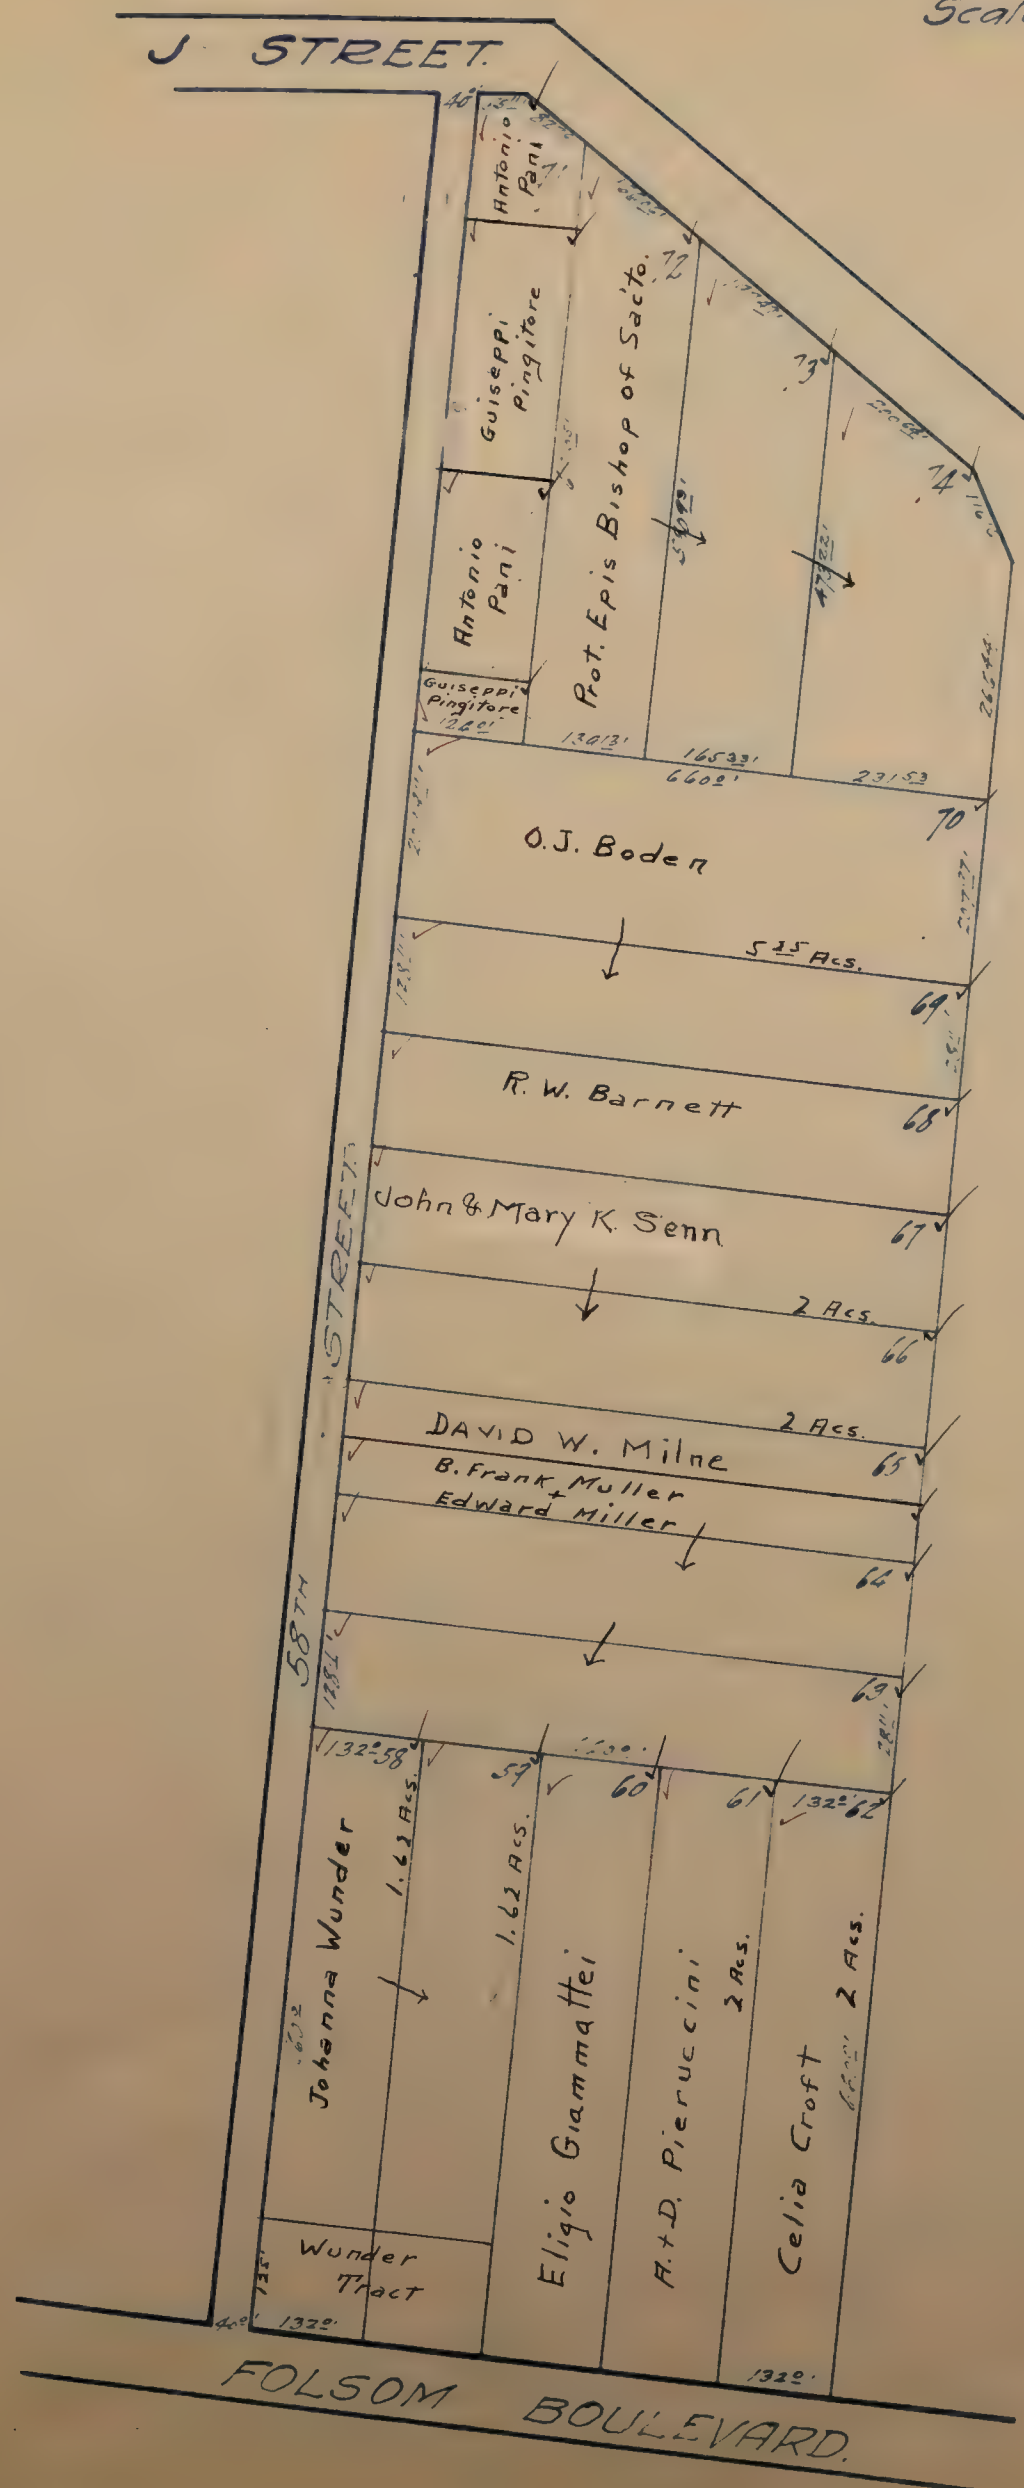 Scal
J STREET.
40º
Antonio
Pani
Guiseppi
Pingitore
Antonio
Pani
Guiseppi
Pingitore
Prot. Epis Bishop of Sacto.
72
73
74
590.93'
473.22'
265.44
130.13'
165.33'
231.53
660.0'
70
O.J. Boden
5.25 Acs.
69
R. W. Barnett
68
67
John & Mary K. Senn
2 Acs.
66
2 Acs.
65
DAVID W. Milne
B. Frank Muller
+
Edward Miller
64
63
58TH STREET
128.1'
132.0 58
59
60
61
132.0' 62
Johanna Wunder
1.62 Acs.
1.62 Acs.
Eligio Giammattei
A. + D. Pieruccini
2 Acs.
Celia Croft
2 Acs.
Wunder
Tract
135'
40.0'
132.0'
132.0'
FOLSOM BOULEVARD.